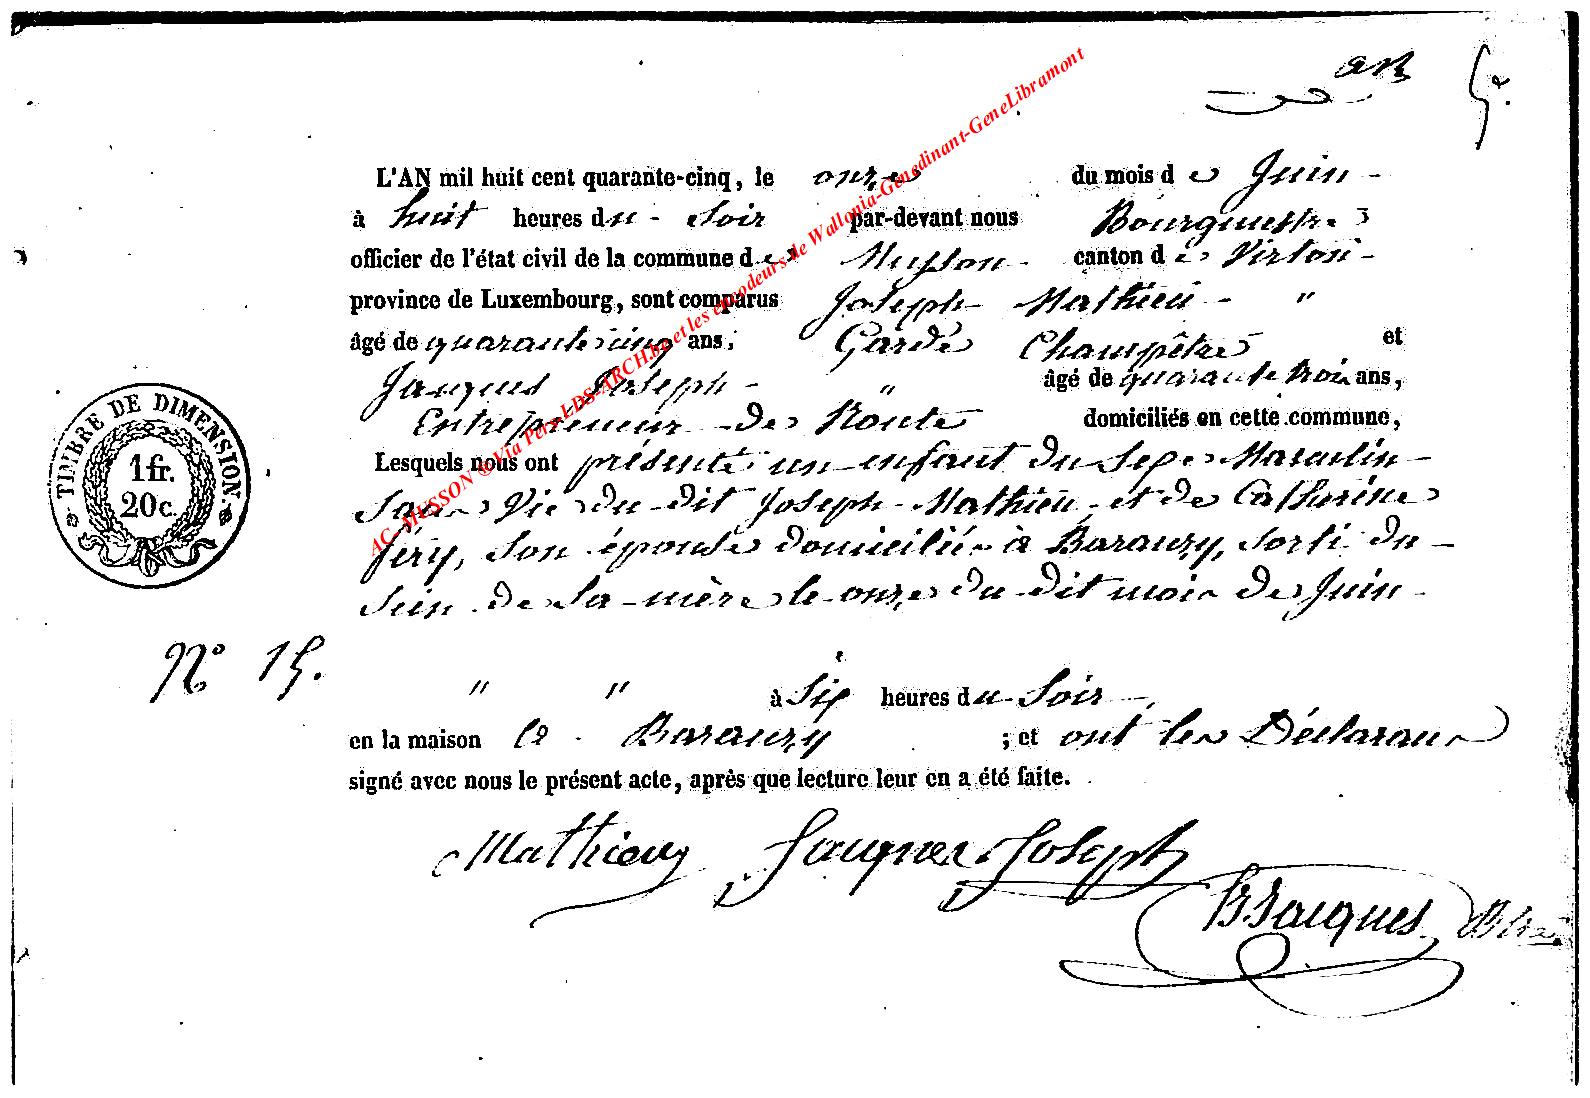 5e.
L'AN mil huit cent quarante-cinq, le onze du mois de Juin -
à huit heures du - Soir par-devant nous Bourguestre
officier de l'état civil de la commune de Musson - canton de Virton -
province de Luxembourg, sont comparus Joseph Mathieu - "
âgé de quarante cinq ans, Garde Champêtre et
Jacques Joseph - " âgé de quarante trois ans,
Entrepreneur de Route domiciliés en cette commune,
Lesquels nous ont présenté un enfant du Sexe Masculin -
Sans Vie du dit Joseph Mathieu et de Catherine
féry, son épouse domiciliée à Baranzy, sorti du -
Sein de Sa mère le onze du dit mois de Juin -
N° 15.
" " à Six heures du Soir -,
en la maison à Baranzy ; et ont les Déclarans
signé avec nous le présent acte, après que lecture leur en a été faite.
Mathieu Jacques Joseph
Jacques
TIMBRE DE DIMENSION.
1fr.
20c.
AC-MUSSON © Via Pers-LDS-ARCH.be et les encodeurs de Wallonia-Genedinant-GeneLibramont